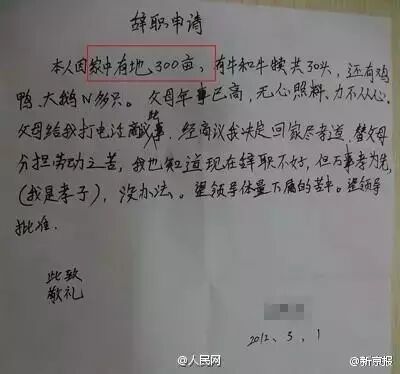 辞职申请
本人因家中有地300亩、有牛和牛犊共30头,还有鸡
鸭、大鹅N多只。父母年事已高,无心照料、力不从心。
父母给我打电话商议此事,经商议我决定回家尽孝道,替父母
分担劳动之苦,我也知道现在辞职不好,但百事孝为先,
(我是孝子),没办法。望领导体量下属的苦中。望领导
批准.
此致
敬礼
2012、5、1
@人民网
@新京报